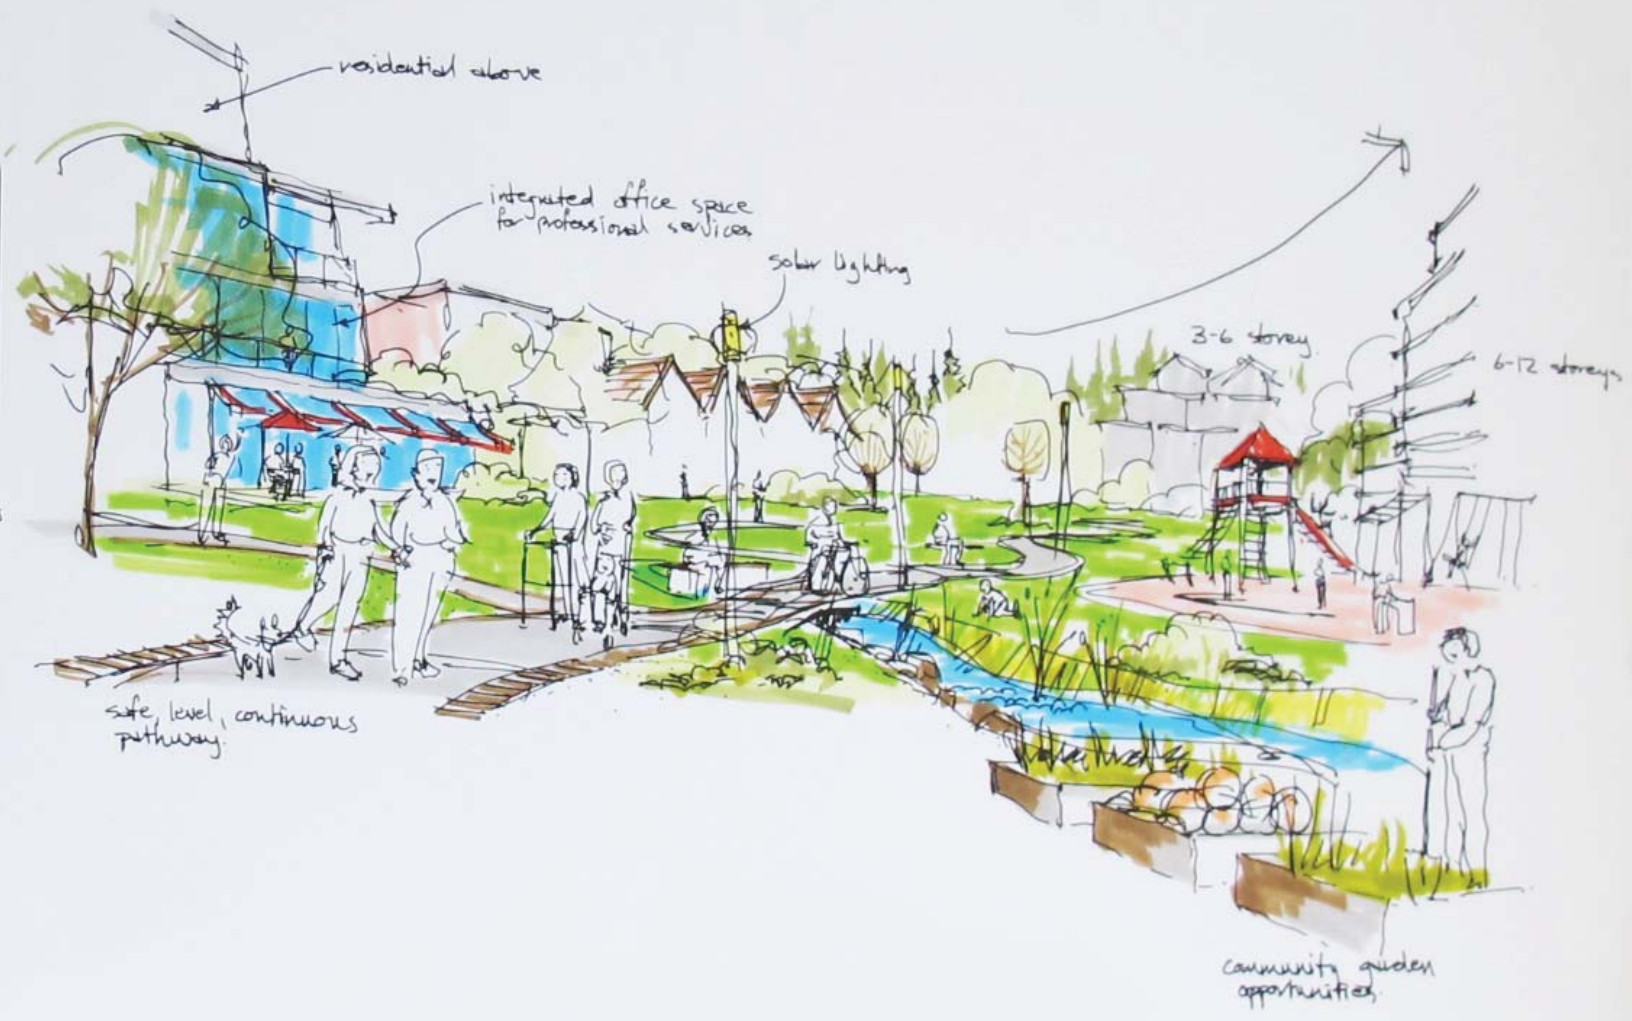 residential above
integrated office space
for professional services
solar lighting
3-6 storey
6-12 storeys
safe, level, continuous
pathway.
community garden
opportunities.